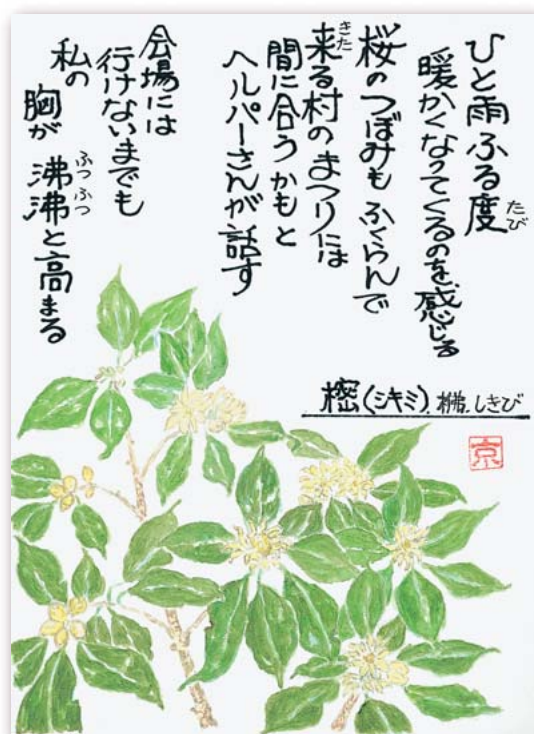 ひと雨ふる度
たび
暖かくなってくるのを、感じる
桜のつぼみも ふくらんで
来る村のまつりには
きた
間に合うかもと
ヘルパーさんが話す
会場には
行けないまでも
私の
胸が 沸沸と高まる
ふつふつ
樒(シキミ). 梻. しきび
京